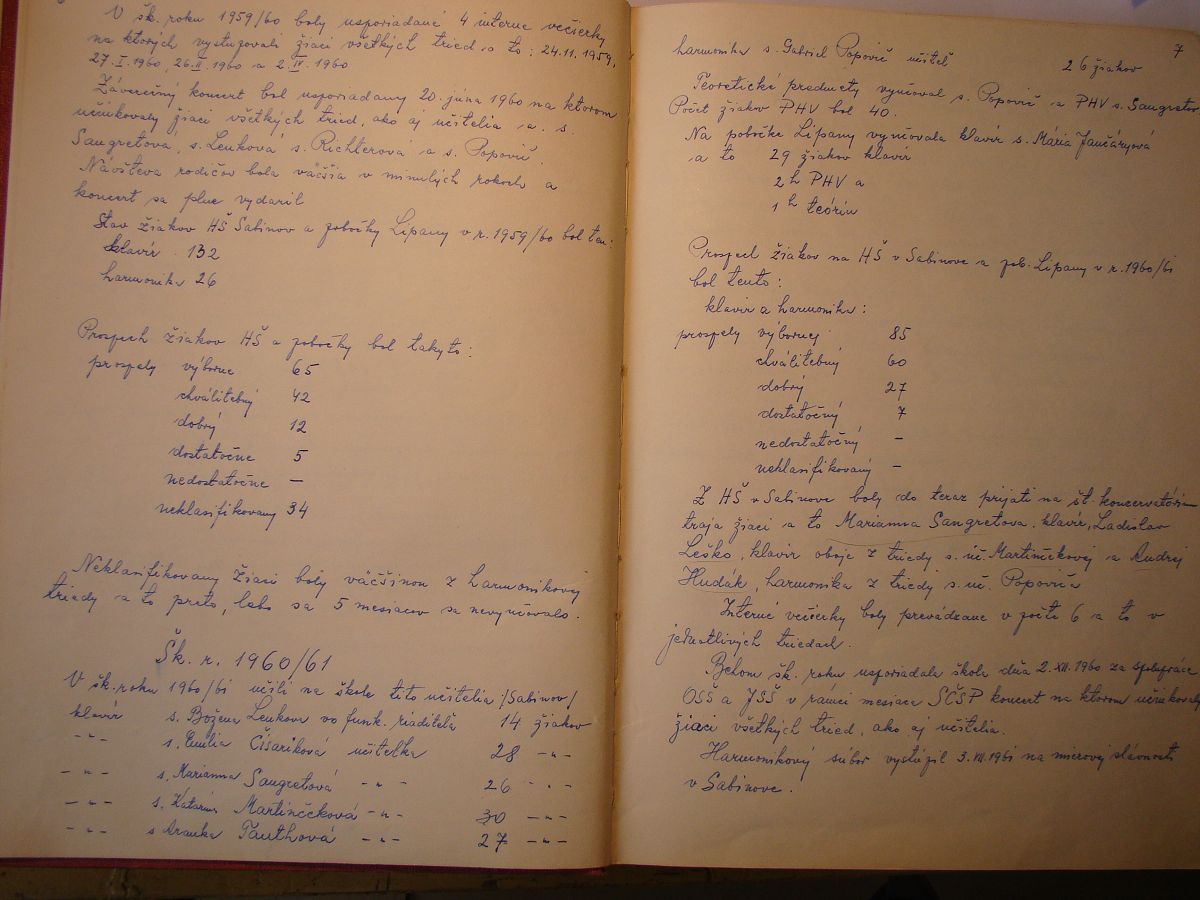 V šk. roku 1959/60 boly usporiadané 4 interne večierky
na ktorých vystupovali žiaci všetkých tried a to: 24.11.1959,
27.I.1960, 26.II.1960 a 2.IV.1960
Záverečný koncert bol usporiadaný 20. júna 1960 na ktorom
učinkovaly žiaci všetkých tried, ako aj učitelia a. s.
Saugretova, s. Leuková s. Richterová a s. Popovič.
Návšteva rodičov bola väčšia v minulých rokoch a
koncert sa plne vydaril
Stav žiakov HŠ Sabinov a pobočky Lipany v r. 1959/60 bol ten:
klavír . 132
harmonika 26
Prospech žiakov HŠ a pobočky bol takýto:
prospely výborne 65
chválitebný 42
dobrý 12
dostatočne 5
nedostatočne –
neklasifikovaný 34
Neklasifikovaný žiaci boly väčšinou z harmonikovej
triedy a to preto, lebo sa 5 mesiacov sa nevyučovalo.
Šk. r. 1960/61
V šk. roku 1960/61 učili na škole títo učitelia /Sabinov/
klavír s. Božena Leukova vo funk. riaditeľa 14 žiakov
-"- s. Emilia Čisariková učiteľka 28 -"-
-"- s. Marianna Saugretová -"- 26 -"-
-"- s. Katarína Martinčeková -"- 30 -"-
-"- s Aranka Tauthová -"- 27 -"-
7
harmonika s. Gabriel Popovič učiteľ 26 žiakov
Teoretické predmety vyučoval s. Popovič a PHV s. Saugretov
Počet žiakov PHV bol 40.
Na pobočke Lipany vyučovala klavír s. Mária Jančáryová
a to 29 žiakov klavír
2 h PHV a
1 h teóriu
Prospech žiakov na HŠ v Sabinove a pob. Lipany v r. 1960/61
bol tento:
klavír a harmonika:
prospely výbornej 85
chválitebný 60
dobrý 27
dostatočný 7
nedostatočný –
neklasifikovaný –
Z HŠ v Sabinove boly do teraz prijatí na št. koncervatórium
traja žiaci a to Marianna Saugretova. klavír, Ladislav
Leško, klavír oboje z triedy s. uč. Martinčekovej a Andrej
Hudák, harmonika z triedy s. uč. Popoviča
Interné večierky boly prevádzane v počte 6 a to v
jednotlivých triedach.
Behom šk. roku usporiadala škola dňa 2.XII.1960 za spolupráce
OSŠ a JSŠ v rámci mesiaca SČSP koncert na ktorom učinkovaly
žiaci všetkých tried, ako aj učitelia.
Harmonikový súbor vystúpil 3.VII.1961 na mierovej slávnosti
v Sabinove.